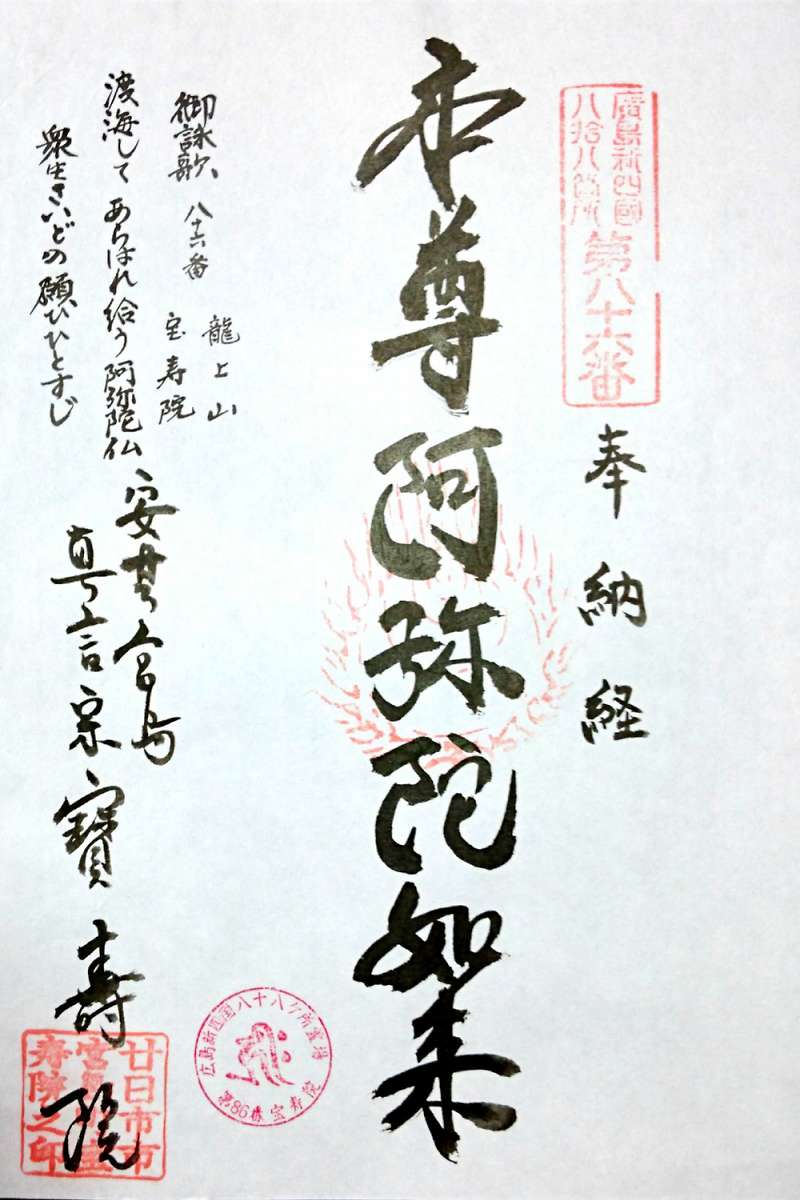 廣島新四國
八拾八箇所
第八十六番
奉納経
本尊阿弥陀如来
御詠歌 八十六番
龍上山
宝寿院
渡海して あらはれ給う 阿弥陀仏
衆生さいどの 願ひひとすじ
安芸宮島
真言宗 寳壽院
広島新四国八十八ヶ所霊場
第86番宝寿院
廿日市市
寿院之印